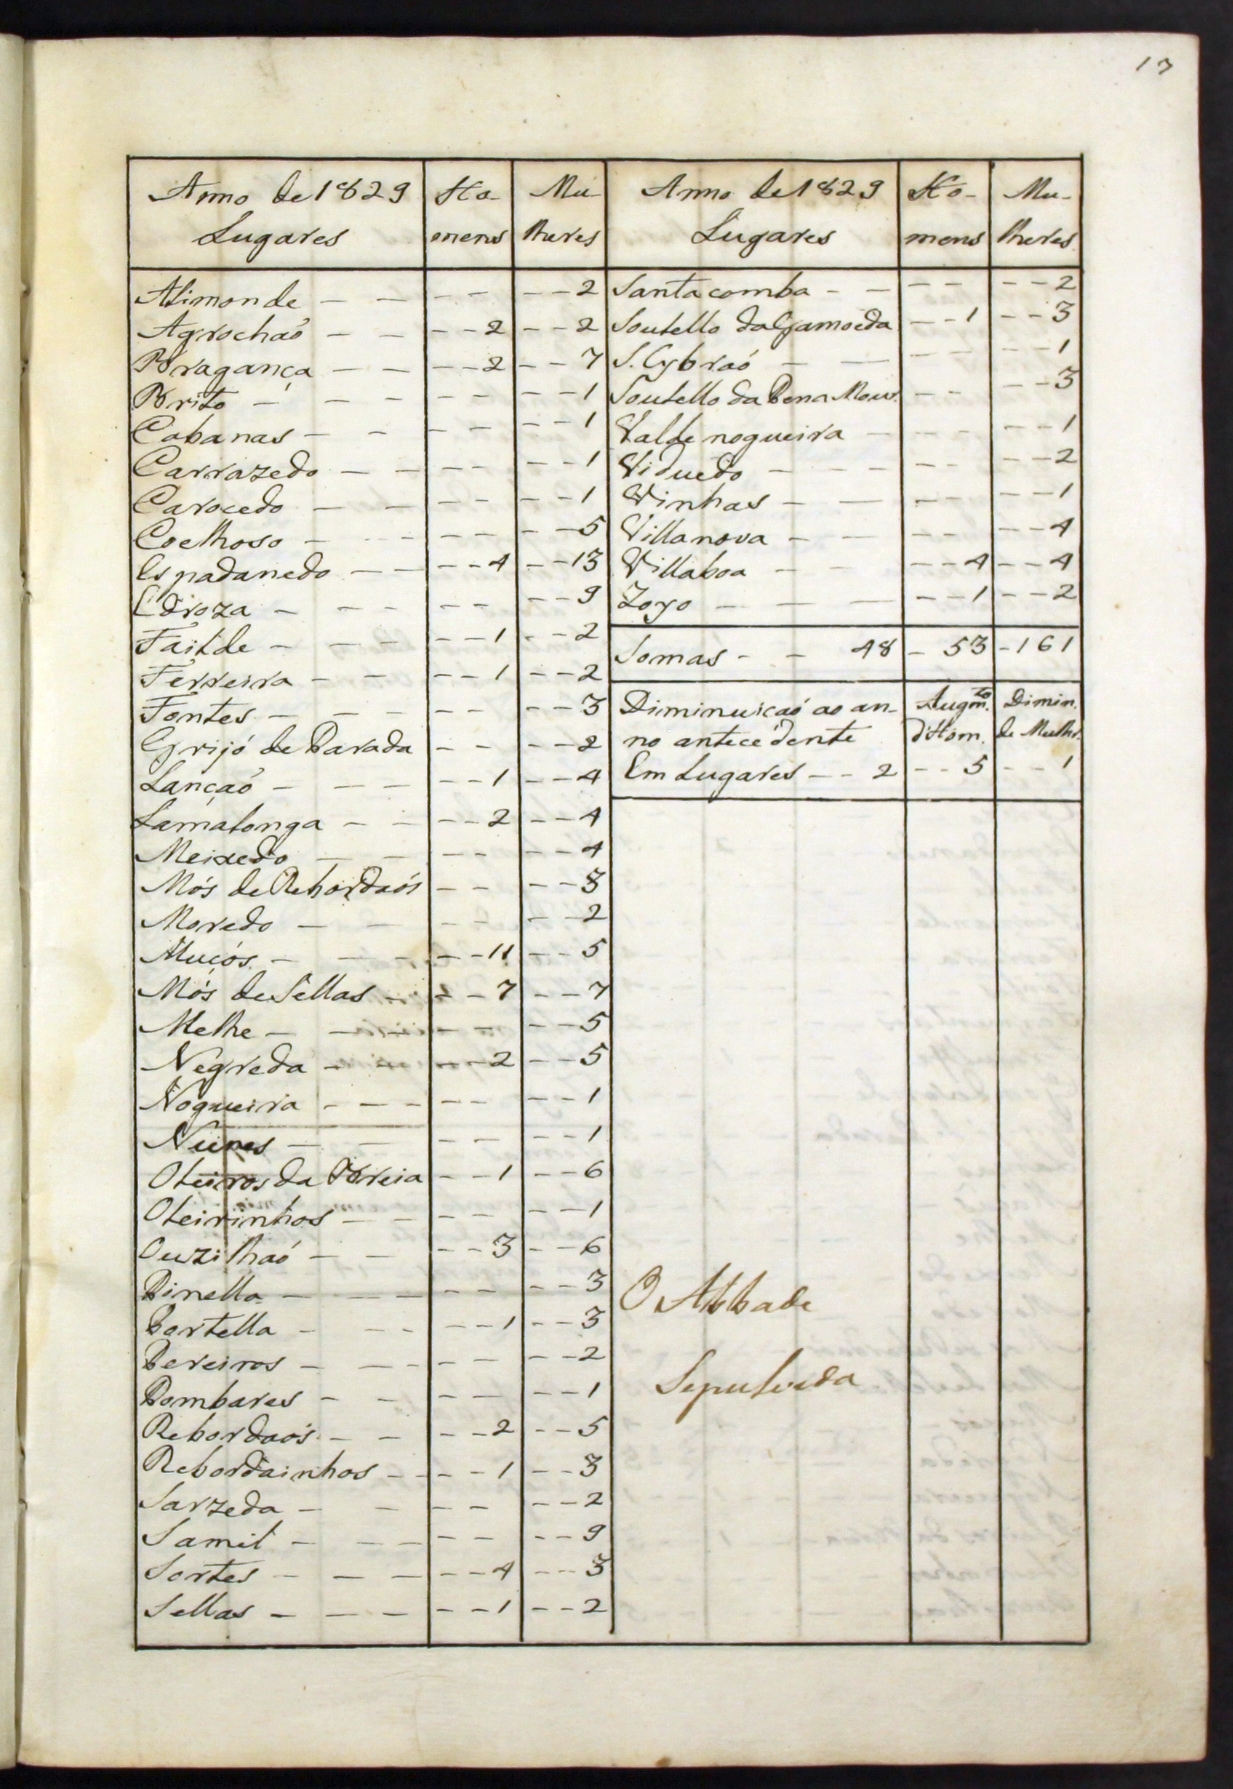 17
Anno de 1829 Ho- Mu-
Lugares mens lheres
Alimonde - - - - - - 2
Agrochaõ - - - - 2 - - 2
Bragança - - - - 2 - - 7
Brito - - - - - - - 1
Cabanas - - - - - - 1
Carrazedo - - - - - - 1
Carocedo - - - - - - 1
Coelhoso - - - - - - - 5
Espadanedo - - - - 4 - - 13
Edroza - - - - - - - 9
Failde - - - - - 1 - - 2
Ferreira - - - - 1 - - 2
Fontes - - - - - - - 3
Grijó de Parada - - - - 2
Lançaõ - - - - - 1 - - 4
Lamalonga - - - - 2 - - 4
Meixedo - - - - - - 4
Mós de Rebordaõs - - - - 3
Moredo - - - - - - 2
Muçós - - - - - 11 - - 5
Mós de Sellas - - - 7 - - 7
Melhe - - - - - - - 5
Negreda - - - - 2 - - 5
Nogueira - - - - - - - 1
Nunes - - - - - - 1
Oteiros da Breia - - 1 - - 6
Oteirinhos - - - - - - 1
Ouzilhaõ - - - - 3 - - 6
Pinella - - - - - - - 3
Portella - - - - - 1 - - 3
Pereiros - - - - - - - 2
Pombares - - - - - - 1
Rebordaõs - - - - 2 - - 5
Rebordainhos - - - 1 - - 3
Sarzeda - - - - - - 2
Samil - - - - - - - 9
Sortes - - - - - 4 - - 3
Sellas - - - - - 1 - - 2
Anno de 1829 Ho- Mu-
Lugares mens lheres
Santa comba - - - - - - 2
Soutello da Gamoeda - - 1 - - 3
S. Cybraõ - - - - - - 1
Soutello da Pena Mour. - - - - 3
Valde nogueira - - - - - 1
Viduedo - - - - - - 2
Vinhas - - - - - - 1
Villa nova - - - - - - 4
Villa boa - - - - 4 - - 4
Zoyo - - - - - 1 - - 2
Somas - - 48 - 53 - 161
Diminuiçaõ ao an- Augm.to Dimin.
no antecedente d'Hom. de Mulhr.
Em Lugares - - 2 - - 5 - - 1
O Abbade
Sepulveda